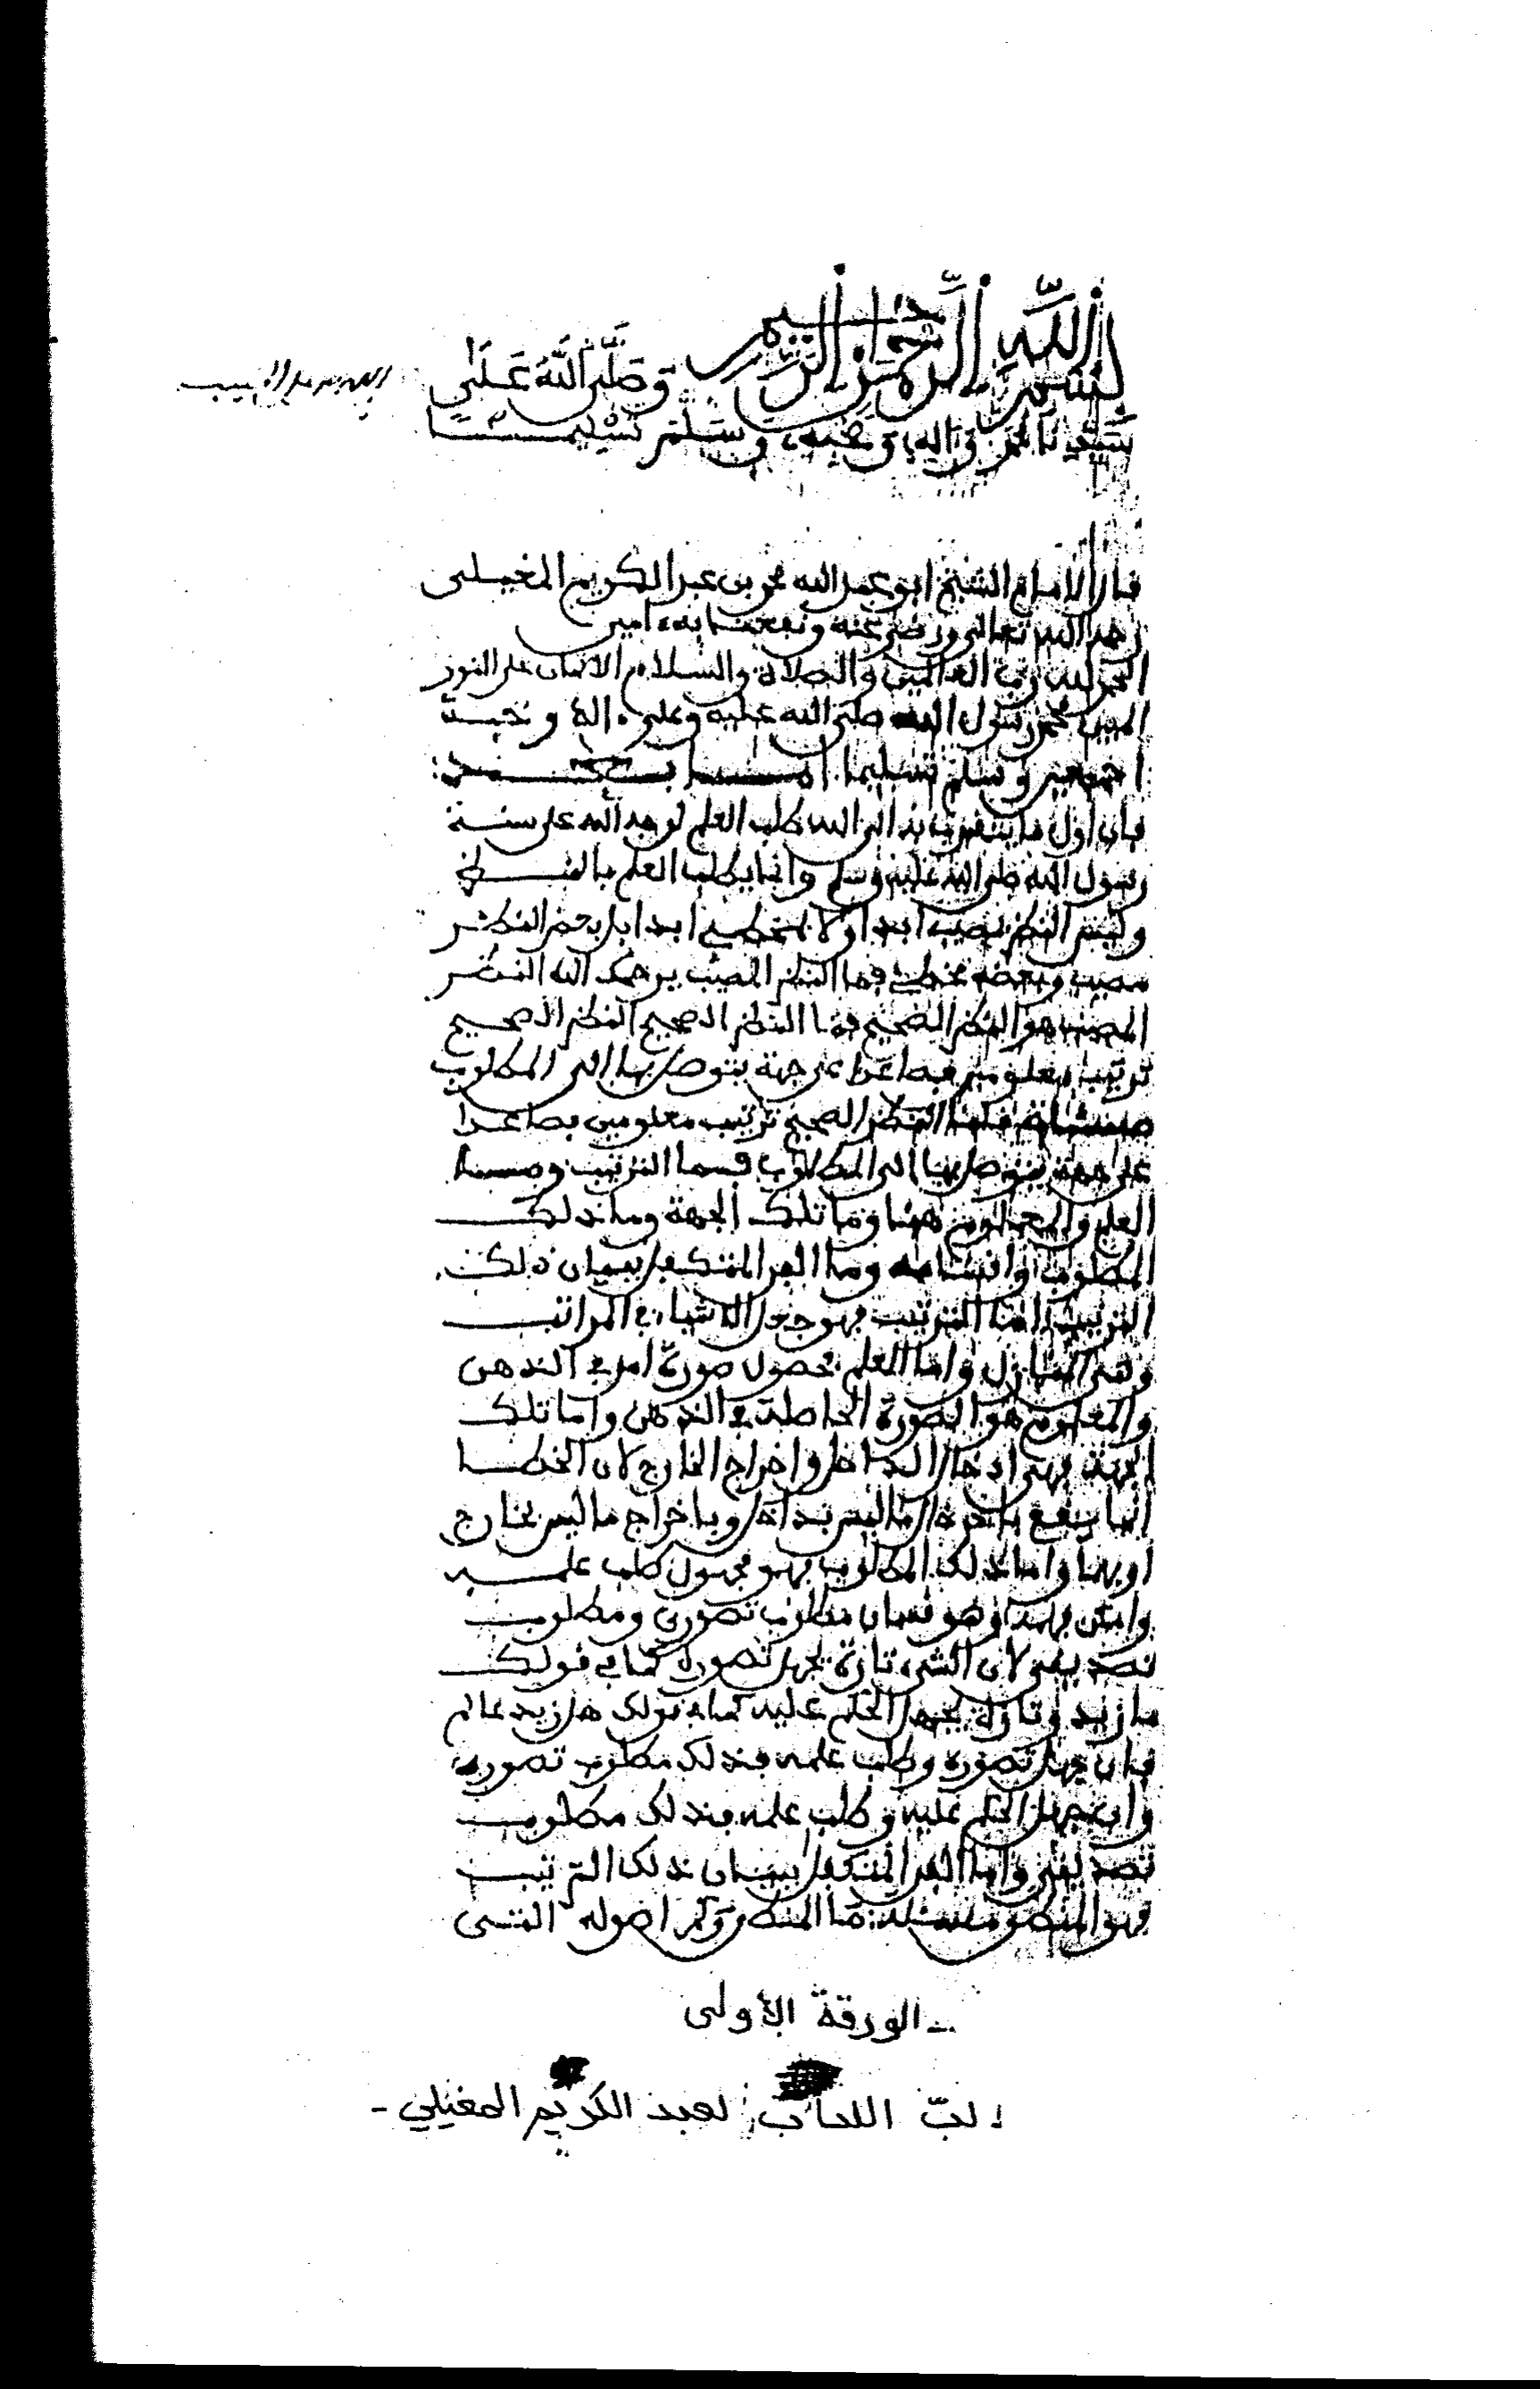 بسم الله الرحمن الرحيم وصلى الله على
سيدنا محمد وآله وصحبه وسلم تسليما
قال الامام الشيخ ابو عبد الله محمد بن عبد الكريم المغيلي
رحمه الله تعالى ورضي عنه ونفعنا به ءامين
الحمد لله رب العالمين والصلاة والسلام الاتمان على النور
المبين محمد رسول الله صلى الله عليه وعلى ءاله وصحبه
اجمعين وسلم تسليما اما بعد
فان اول ما يتقرب به الى الله طلب العلم لوجه الله على سنة
رسول الله صلى الله عليه وسلم وانما يطلب العلم بالنظر
وليس النظر يصيب ابدا ولا يخطئ ابدا بل بعض النظر
مصيب وبعضه مخطئ فما النظر المصيب يرحمك الله النظر
المصيب هو النظر الصحيح فما النظر الصحيح النظر الصحيح
ترتيب معلومين فصاعدا على جهة يتوصل بها الى المطلوب
قلنا النظر الصحيح ترتيب معلومين فصاعدا
على جهة يتوصل بها الى المطلوب فما الترتيب وما
العلم والمعلوم هنا وما تلك الجهة وما ذلك
المطلوب وما اقسامه وما الفن المتكفل ببيان ذلك
الترتيب اما الترتيب فهو جعل الاشياء في المراتب
وهي المنازل واما العلم فحصول صورة امر في الذهن
والمعلوم هو الصورة الحاصلة في الذهن واما تلك
الجهة فهي ادخال الداخل واخراج الخارج لان الخطا
انما يقع بادخال ما ليس بداخل وباخراج ما ليس بخارج
او بهما واما ذلك المطلوب فهو مجهول طلب علمه
وامكن فهمه وهو قسمان مطلوب تصوري ومطلوب
تصديقي لان الشيء تارة يجهل تصوره كما في قولك
ما زيد وتارة يجهل الحكم عليه كما في قولك هل زيد عالم
فان جهل تصوره وطلب علمه فذلك مطلوب تصوري
وان جهل الحكم عليه وطلب علمه فذلك مطلوب
تصديقي واما الفن المتكفل ببيان ذلك الترتيب
فهو المنطق مسئلة ما المنطق وكم اصوله التي
- الورقة الأولى
لبّ اللباب لعبد الكريم المغيلي -